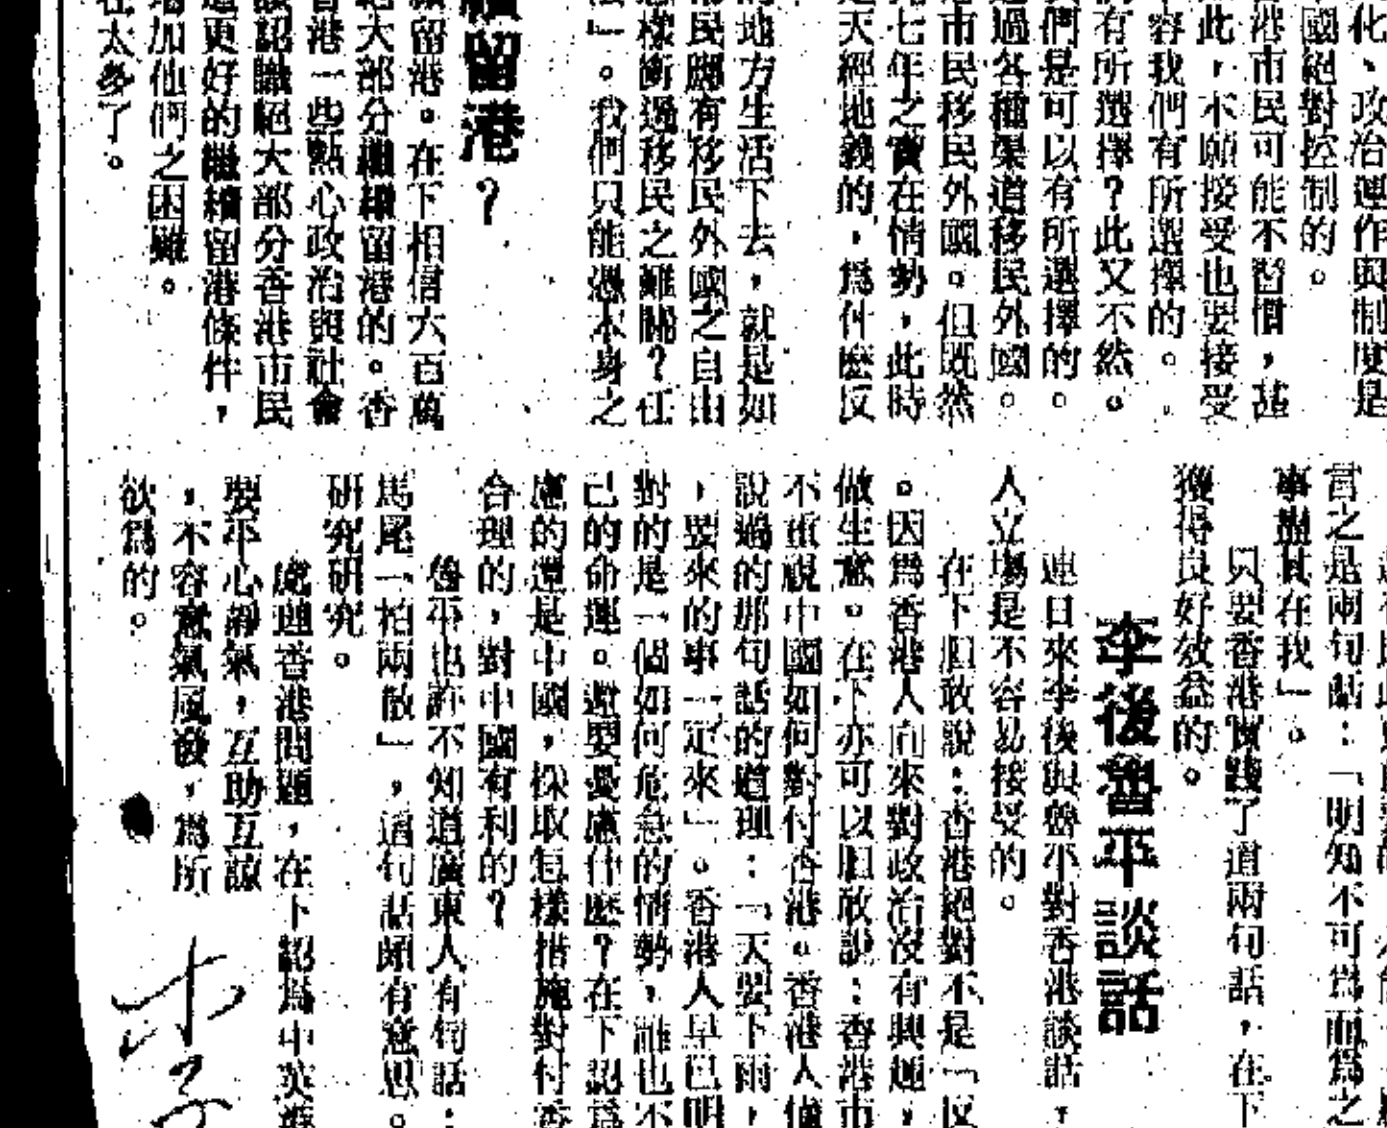 化、政治運作與制度是
國絕對控制的。
港市民可能不習慣，甚
此，不願接受也要接受
容我們有所選擇的。
有所選擇？此又不然。
們是可以有所選擇的。
過各種渠道移民外國。
市民移民外國。但既然
七年之實在情勢，此時
天經地義的，為什麼反
地方生活下去，就是如
民應有移民外國之自由
樣衝過移民之難關？任
」。我們只能憑本身之
留港？
留港。在下相信六百萬
大部分繼續留港的。香
港一些熱心政治與社會
認識絕大部分香港市民
更好的繼續留港條件，
加他們之困難。
太多了。
言之是兩句話：「明知不可為而為之
事盡其在我」。
只要香港實踐了這兩句話，在下
獲得良好效益的。
李後魯平談話
連日來李後與魯平對香港談話，
人立場是不容易接受的。
在下胆敢說：香港絕對不是「反
。因為香港人向來對政治沒有興趣，
做生意。在下亦可以胆敢說：香港市
不重視中國如何對付香港。香港人
說過的那句話的道理：「天要下雨，
，要來的事一定來」。香港人早已明
對的是一個如何危急的情勢，誰也不
己的命運。還要憂慮什麼？在下認為
慮的還是中國，採取怎樣措施對付香
合理的，對中國有利的？
魯平也許不知道廣東人有句話：
馬尾一拍兩散」，這句話頗有意思。
研究研究。
處理香港問題，在下認為中英
要平心靜氣，互助互諒
，不容意氣風發，為所
欲為的。